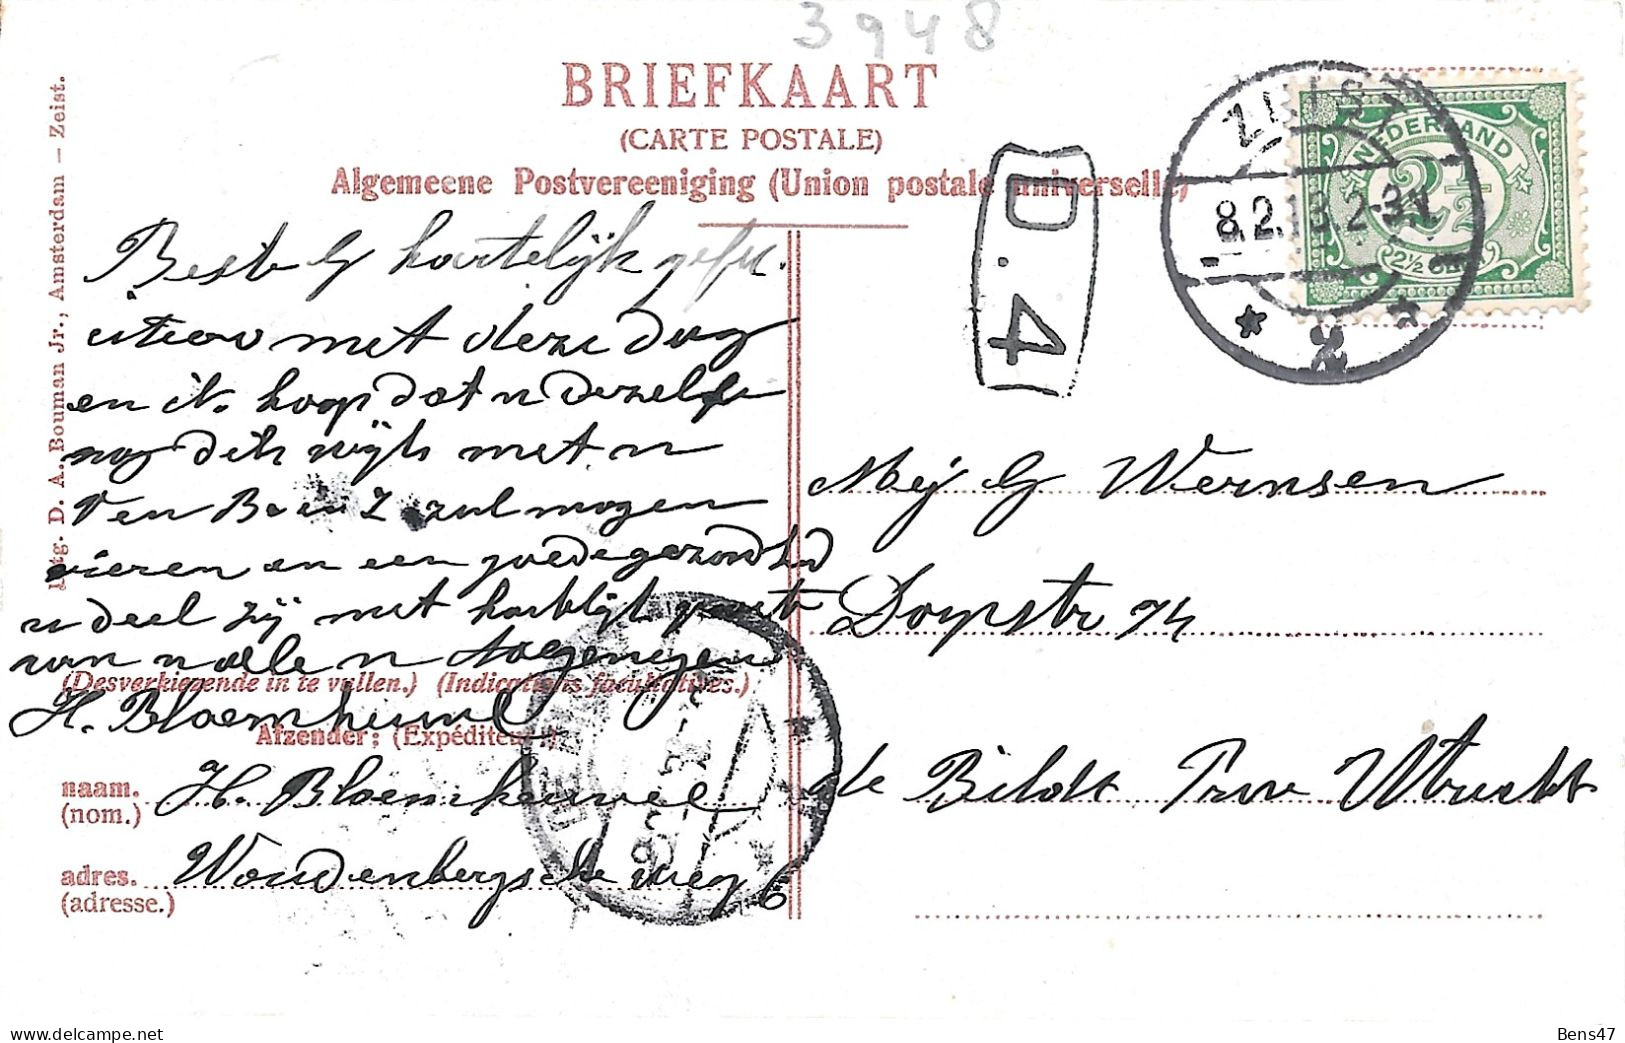 3948
BRIEFKAART
(CARTE POSTALE)
Algemeene Postvereeniging (Union postale universelle)
Uitg. D. A. Bouman Jr., Amsterdam — Zeist.
D.4
ZEIST
8.2.13.2-3N
* 2 *
NEDERLAND
2½
2½ CENT
Beste G hartelijk gefel.
met deze dag
en ik hoop dat u dezelfde
nog dik wijls met u
zul mogen
vieren en een goede gezondhd
u deel zij met hartelijk groete
van u alle u toegenegen
(Desverkiezende in te vullen.) (Indications facultatives.)
H. Bloemheuvel
Afzender: (Expéditeur:)
naam. H. Bloemheuvel
(nom.)
adres. Woudenbergsche weg 6
(adresse.)
Mej G Wernsen
Dorpstr 74
de Bildt Prov Utrecht
Bens47